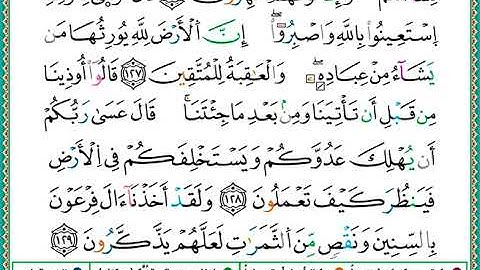 اِسْتَعِينُوا۟ بِاللَّهِ وَاصْبِرُوٓا۟ ۖ إِنَّ اَلْأَرْضَ لِلَّهِ يُورِثُهَا مَن
يَشَآءُ مِنْ عِبَادِهِۦ ۖ وَالْعَٰقِبَةُ لِلْمُتَّقِينَ ١٢٧ قَالُوٓا۟ أُوذِينَا
مِن قَبْلِ أَن تَأْتِيَنَا وَمِنۢ بَعْدِ مَا جِئْتَنَا ۚ قَالَ عَسَىٰ رَبُّكُمْ
أَن يُهْلِكَ عَدُوَّكُمْ وَيَسْتَخْلِفَكُمْ فِى اِلْأَرْضِ
فَيَنظُرَ كَيْفَ تَعْمَلُونَ ١٢٨ وَلَقَدْ أَخَذْنَآ ءَالَ فِرْعَوْنَ
بِالسِّنِينَ وَنَقْصٍ مِّنَ اَلثَّمَرَٰتِ لَعَلَّهُمْ يَذَّكَّرُونَ ١٢٩